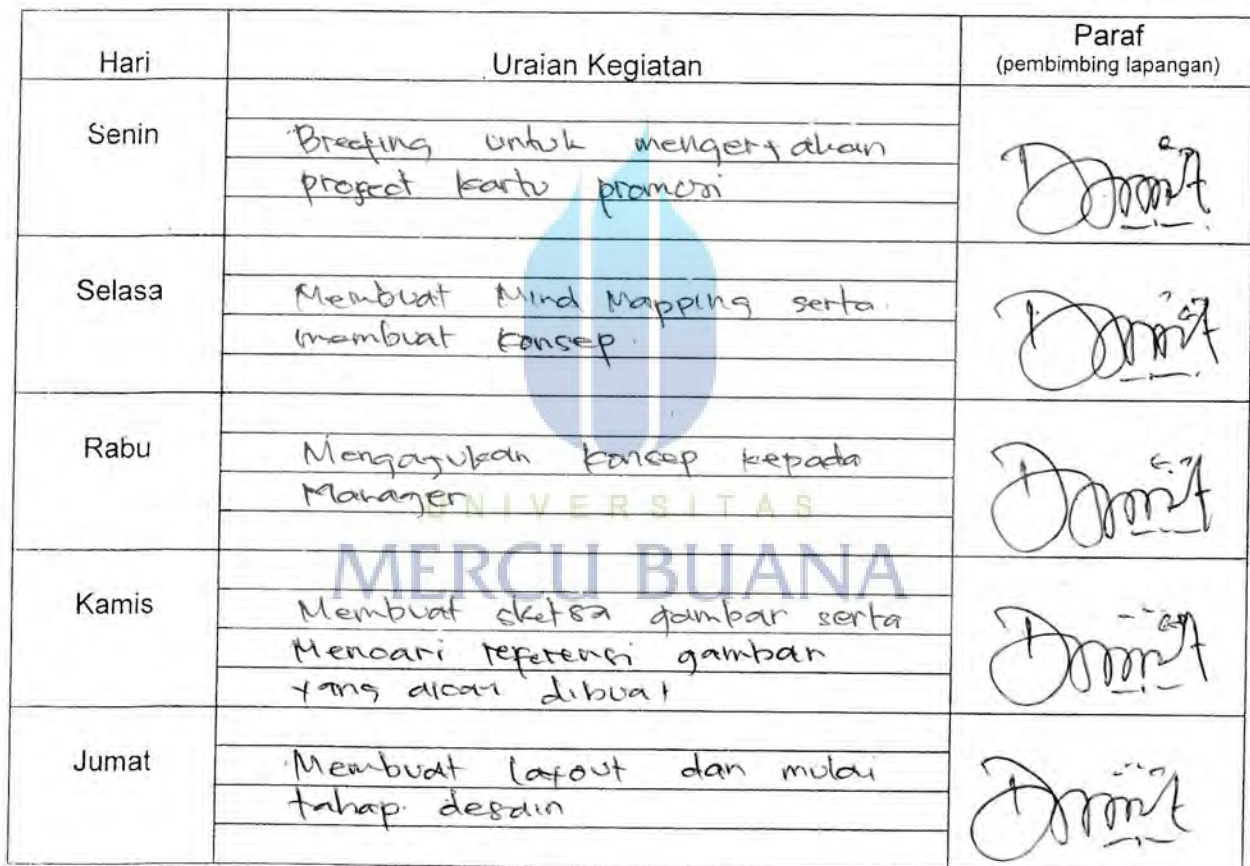 Hari Uraian Kegiatan Paraf
(pembimbing lapangan)
Senin Breafing untuk mengerjakan
project kartu promosi
Selasa Membuat Mind Mapping serta
membuat konsep.
Rabu Mengajukan konsep kepada
Manager
UNIVERSITAS
MERCU BUANA
Kamis Membuat sketsa gambar serta
Mencari referensi gambar
yang akan dibuat
Jumat Membuat layout dan mulai
tahap desain